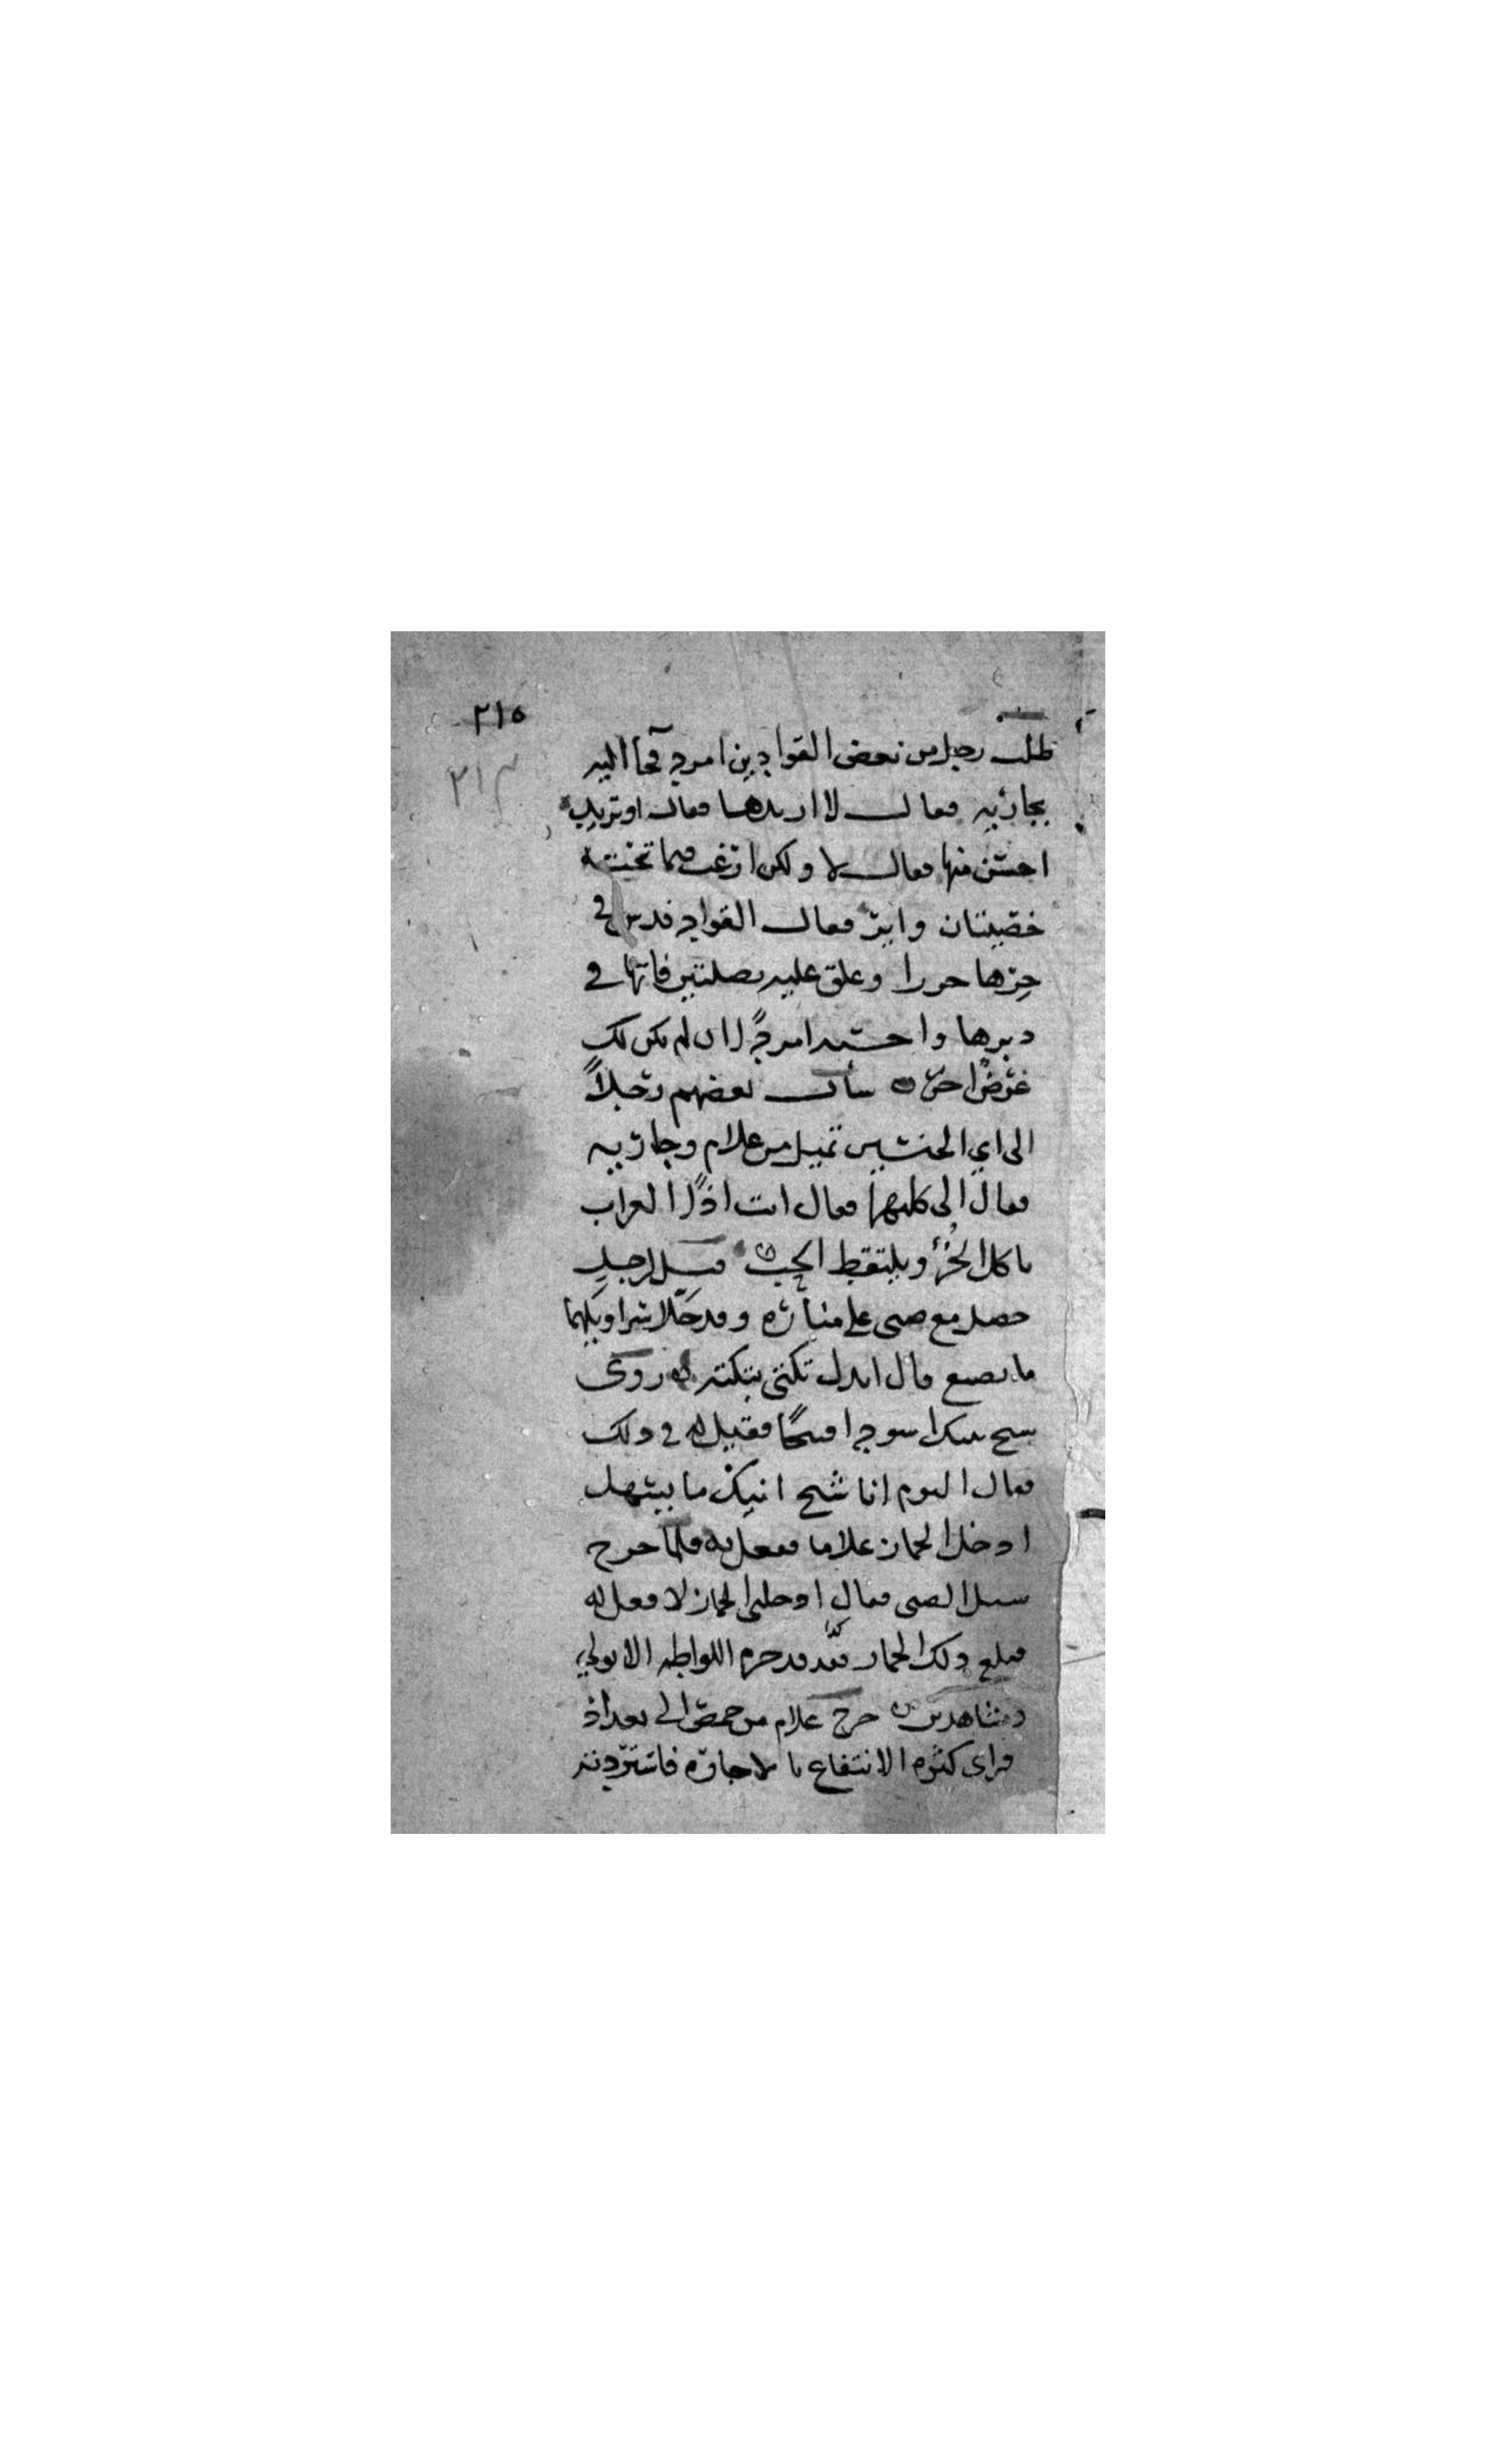 ٢١٥
٢١٣
طلب رجل من بعض القوادين امرد فجا اليه
بجارية فقال لا اريدها فقال او تريد
احسن منها فقال لا ولكن ارغب فيما تحته
خصيتان واير فقال القواد فدس في
حرها جزرا وعلق عليه بصلتين فاتها في
دبرها واحسبه امردًا ان لم يكن لك
غرضًا اخر سأل بعضهم رجلاً
الى اي الجنسين تميل من غلام وجارية
فقال الى كليهما فقال انت اذًا الغراب
ياكل الخرء ويلتقط الحب قيل لرجل
حصل مع صبي على منارة وقد حلا سراويلهما
ما تصنع قال ابدل تكتي بتكته روى
شيخ اسود فقيل له في ذلك
فقال اليوم انا شيخ انيك ما يسهل
ادخل الجماز غلاما ففعل به فلما خرج
سئل الصبي فقال ادخلني الجماز لافعل به
فبلغ ذلك الجماز فقال قد حرم اللواطه الا بولي
وشاهدين خرج غلام من حمص الى بغداد
فراى كثرة الانتفاع بالاجارة